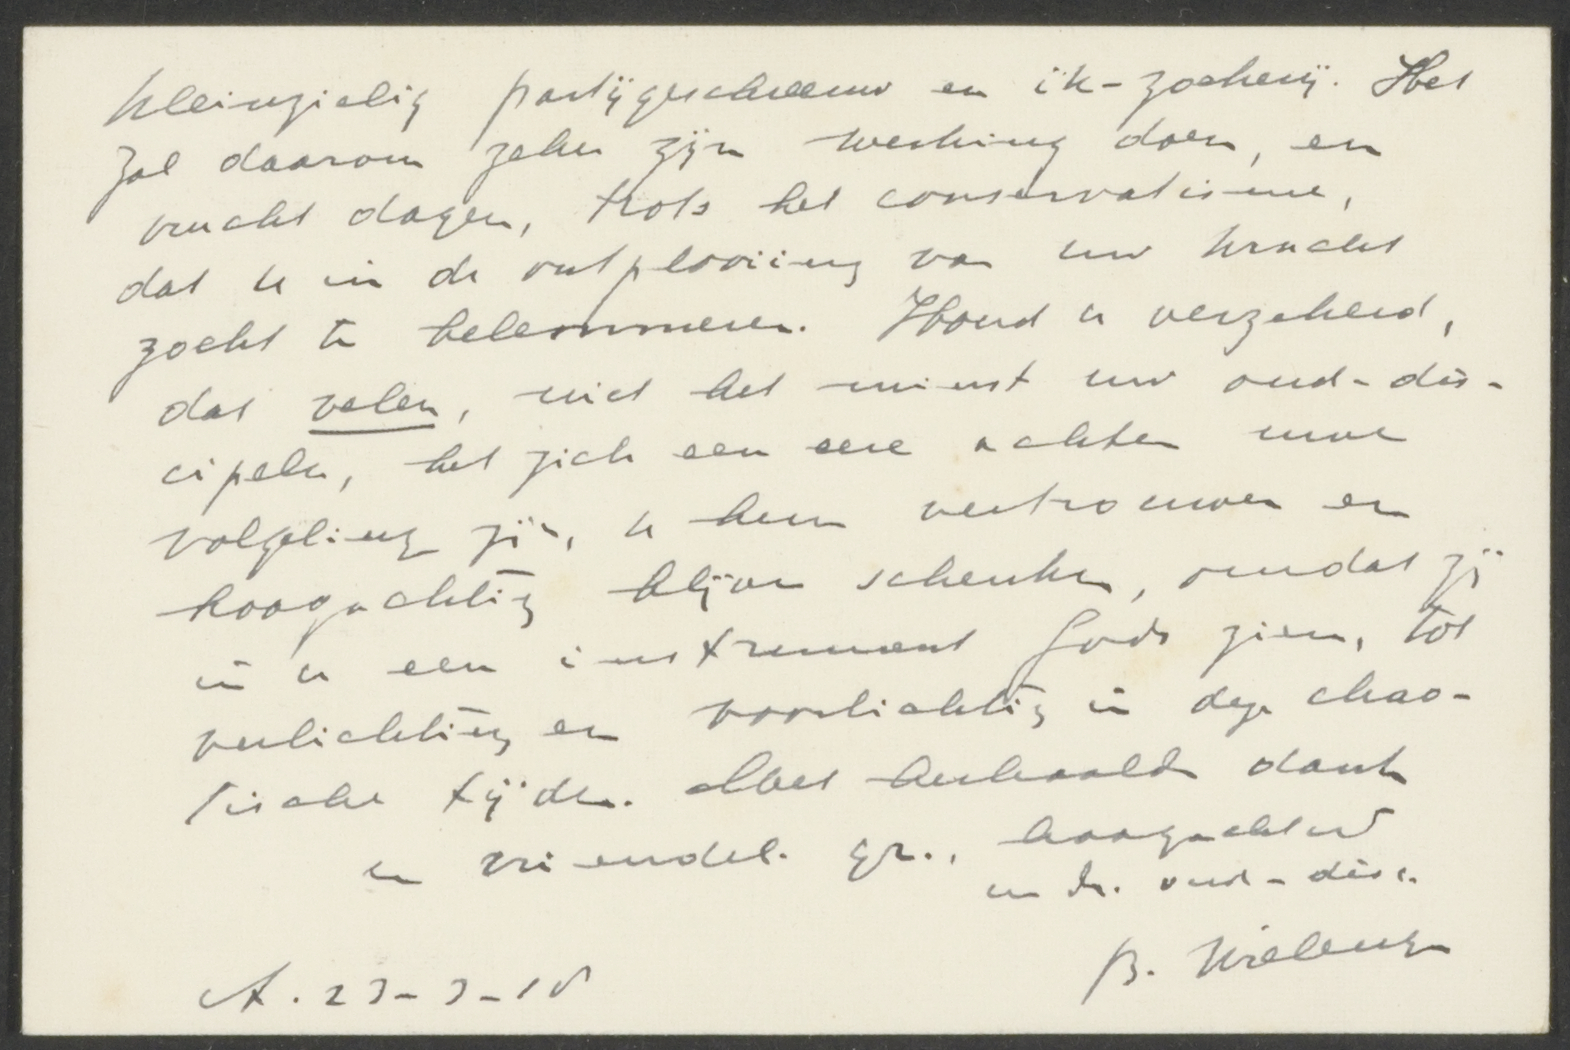 kleinzielig partijgeschreeuw en ik-zoekerij. Het
zal daarom zeker zijn werking doen, en
vrucht dragen, trots het conservatisme,
dat u in de ontplooiing van uw kracht
zocht te belemmeren. Houd u verzekerd,
dat velen, niet het minst uw oud-dis-
cipelen, het zich een eere achten uwe
volgeling zijn, u hun vertrouwen en
hoogachting blijven schenken, omdat zij
in u een instrument Gods zien, tot
verlichting en voorlichting in deze chao-
tische tijden. Met herhaalden dank
en vriendel. gr., hoogachtend
uw dr. oud-disc.
B. Wielenga
A. 23-3-18